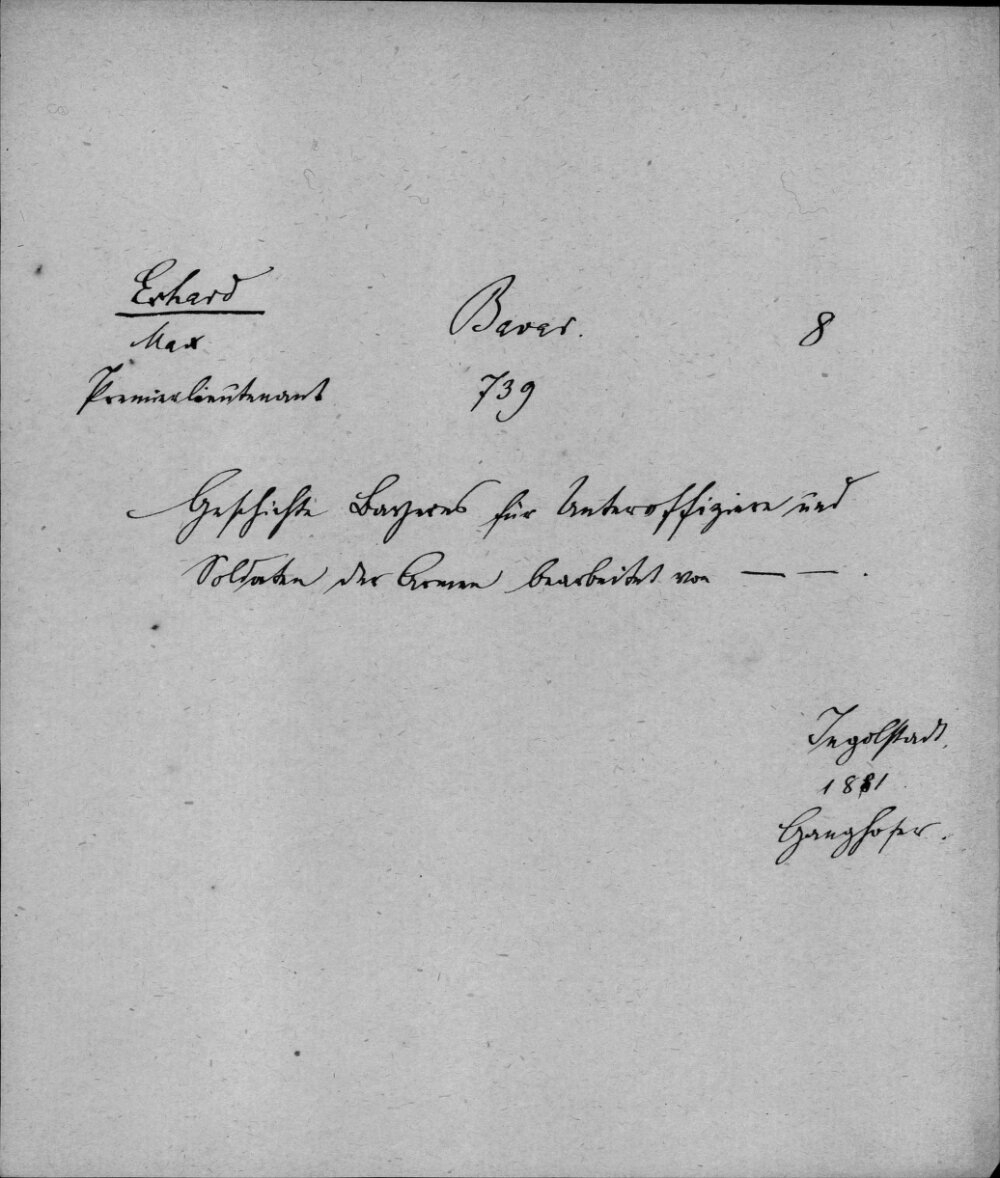 Erhard
Bavar.
8
Max
Premierlieutenant
739
Geschichte Bayerns für Unteroffiziere und
Soldaten der Armee bearbeitet von — — .
Ingolstadt.
1881
Ganghofer.